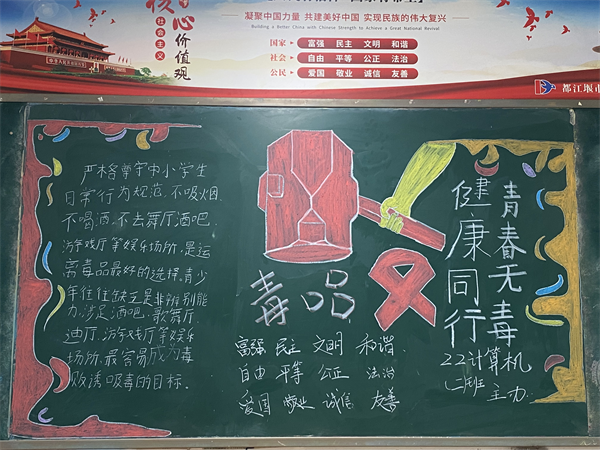 核心价值观
社会主义
凝聚中国力量 共建美好中国 实现民族的伟大复兴
Building a Better China with Chinese Strength to Achieve a Great National Revival
国家 富强 民主 文明 和谐
社会 自由 平等 公正 法治
公民 爱国 敬业 诚信 友善
都江堰市
严格尊守中小学生
日常行为规范,不吸烟
不喝酒,不去舞厅酒吧
游戏厅等娱乐场所,是远
离毒品最好的选择,青少
年往往缺乏是非辨别能
力,涉足酒吧,歌舞厅
迪厅,游戏厅等娱乐
场所,最容易成为毒
贩诱吸毒的目标.
毒品
富强 民主 文明 和谐
自由 平等 公正 法治
爱国 敬业 诚信 友善
青春无毒
健康同行
22计算机
(二)班 主办